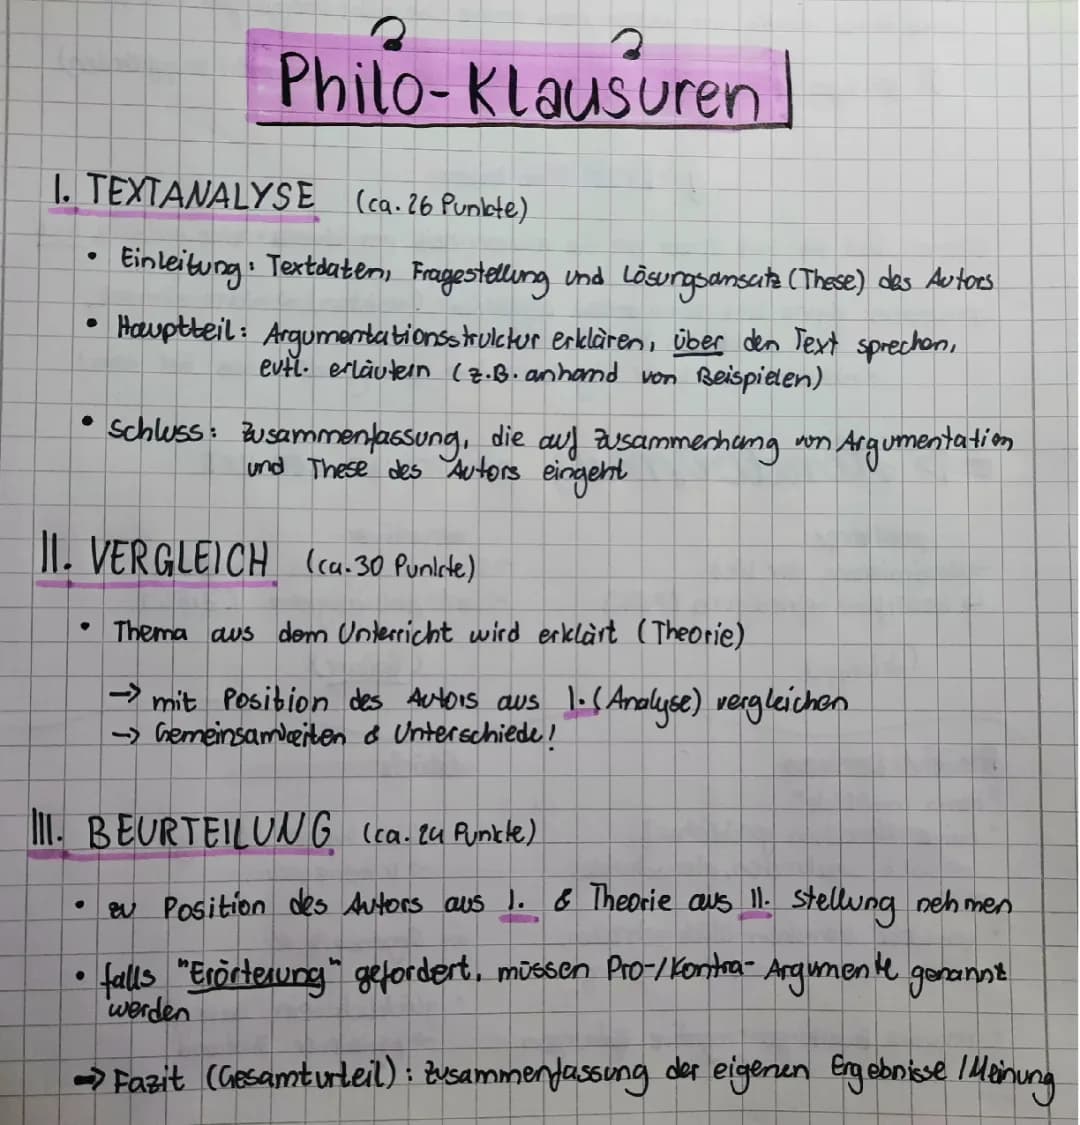 Philo-Klausuren
I. TEXTANALYSE (ca. 26 Punkte)
• Einleitung: Textdaten, Fragestellung und Lösungsansatz (These) des Autors
• Hauptteil: Argumentationsstruktur erklären, über den Text sprechen,
evtl. erläutern (z.B. anhand von Beispielen)
• Schluss: Zusammenfassung, die auf Zusammenhang von Argumentation
und These des Autors eingeht
II. VERGLEICH (ca. 30 Punkte)
• Thema aus dem Unterricht wird erklärt (Theorie)
→ mit Position des Autors aus I. (Analyse) vergleichen
→ Gemeinsamkeiten & Unterschiede!
III. BEURTEILUNG (ca. 24 Punkte)
• zu Position des Autors aus I. & Theorie aus II. Stellung nehmen
• falls "Erörterung" gefordert, müssen Pro-/Kontra-Argumente genannt
werden
⇒ Fazit (Gesamturteil): Zusammenfassung der eigenen Ergebnisse / Meinung